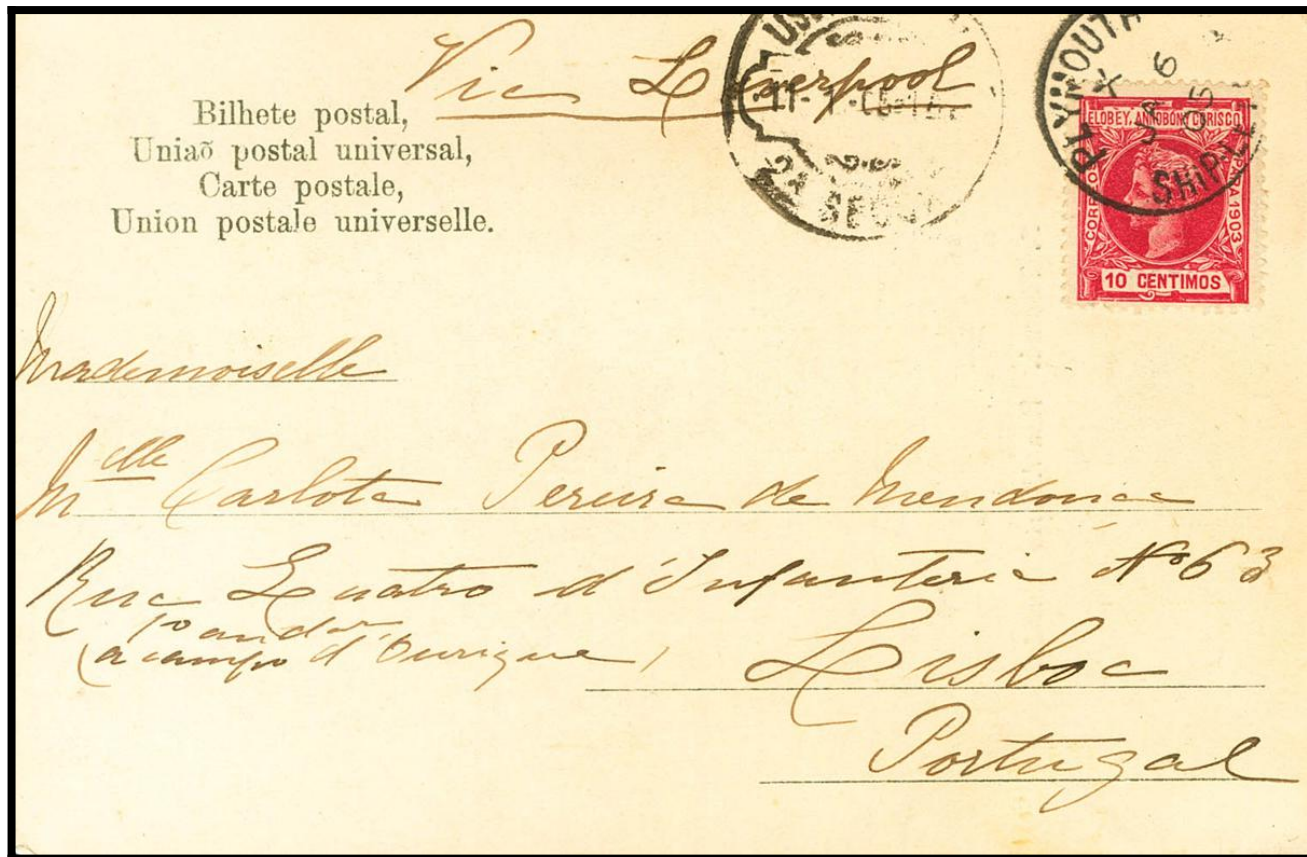 Via Liverpool
Bilhete postal,
Uniaõ postal universal,
Carte postale,
Union postale universelle.
PLYMOUTH
X
JA 6
05
SHIP
ELOBEY, ANNOBON Y CORISCO
CORREOS
1903
10 CENTIMOS
Mademoiselle
Mlle Carlota Pereira de Mendonca
Rua Quatro d'Infanteria No 63
1o andar
(a campo d'Ourique)
Lisboa
Portugal